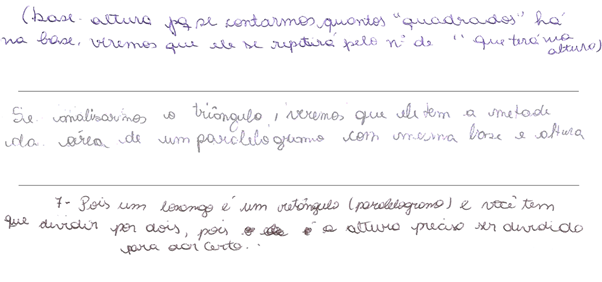 (base. altura pq se contarmos quantos "quadrados" há
na base, viremos que ele se repitirá pelo nº de " que terá na altura)
Se analisarmos o triângulo, veremos que ele tem a metade
da área de um paralelogramo com mesma base e altura
7- Pois um losango é um retângulo (paralelogramo) e você tem
que dividir por dois, pois é a altura precisa ser dividido
para dar certo..